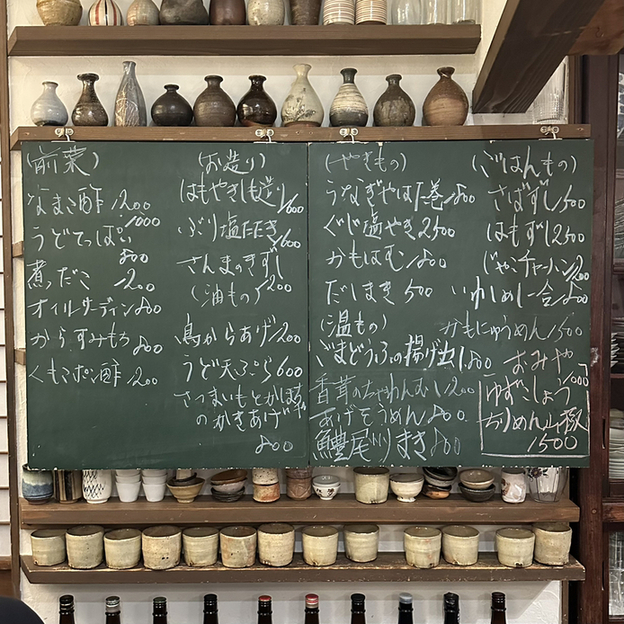 (前菜)
なまこ酢 1200
うどてっぱい 1000
煮つだこ 800
オイルサーディン 1200
からすみもち 800
くもこポン酢 1200
(お造り)
はもやきしも造り 1600
ぶり塩たたき 1600
さんまのきずし 1200
(油もの)
鳥からあげ 1200
うど天ぷら 600
さつまいもとかしわ
のかきあげ
800
(やきもの)
うなぎやはた巻 800
ぐじ塩やき 2500
かもはむ 1800
だしまき 500
(温もの)
ごまどうふの揚げ出し 800
香茸のちゃわんむし 1200
あげそうめん 800
鱧尾川りまき 800
(ごはんもの)
さばずし 1500
はもずし 2500
じゃこチャーハン 1200
いかしめし一合 800
かもにゅうめん 1500
おみや
ゆずこしょう 1000
ちりめん山椒
1500